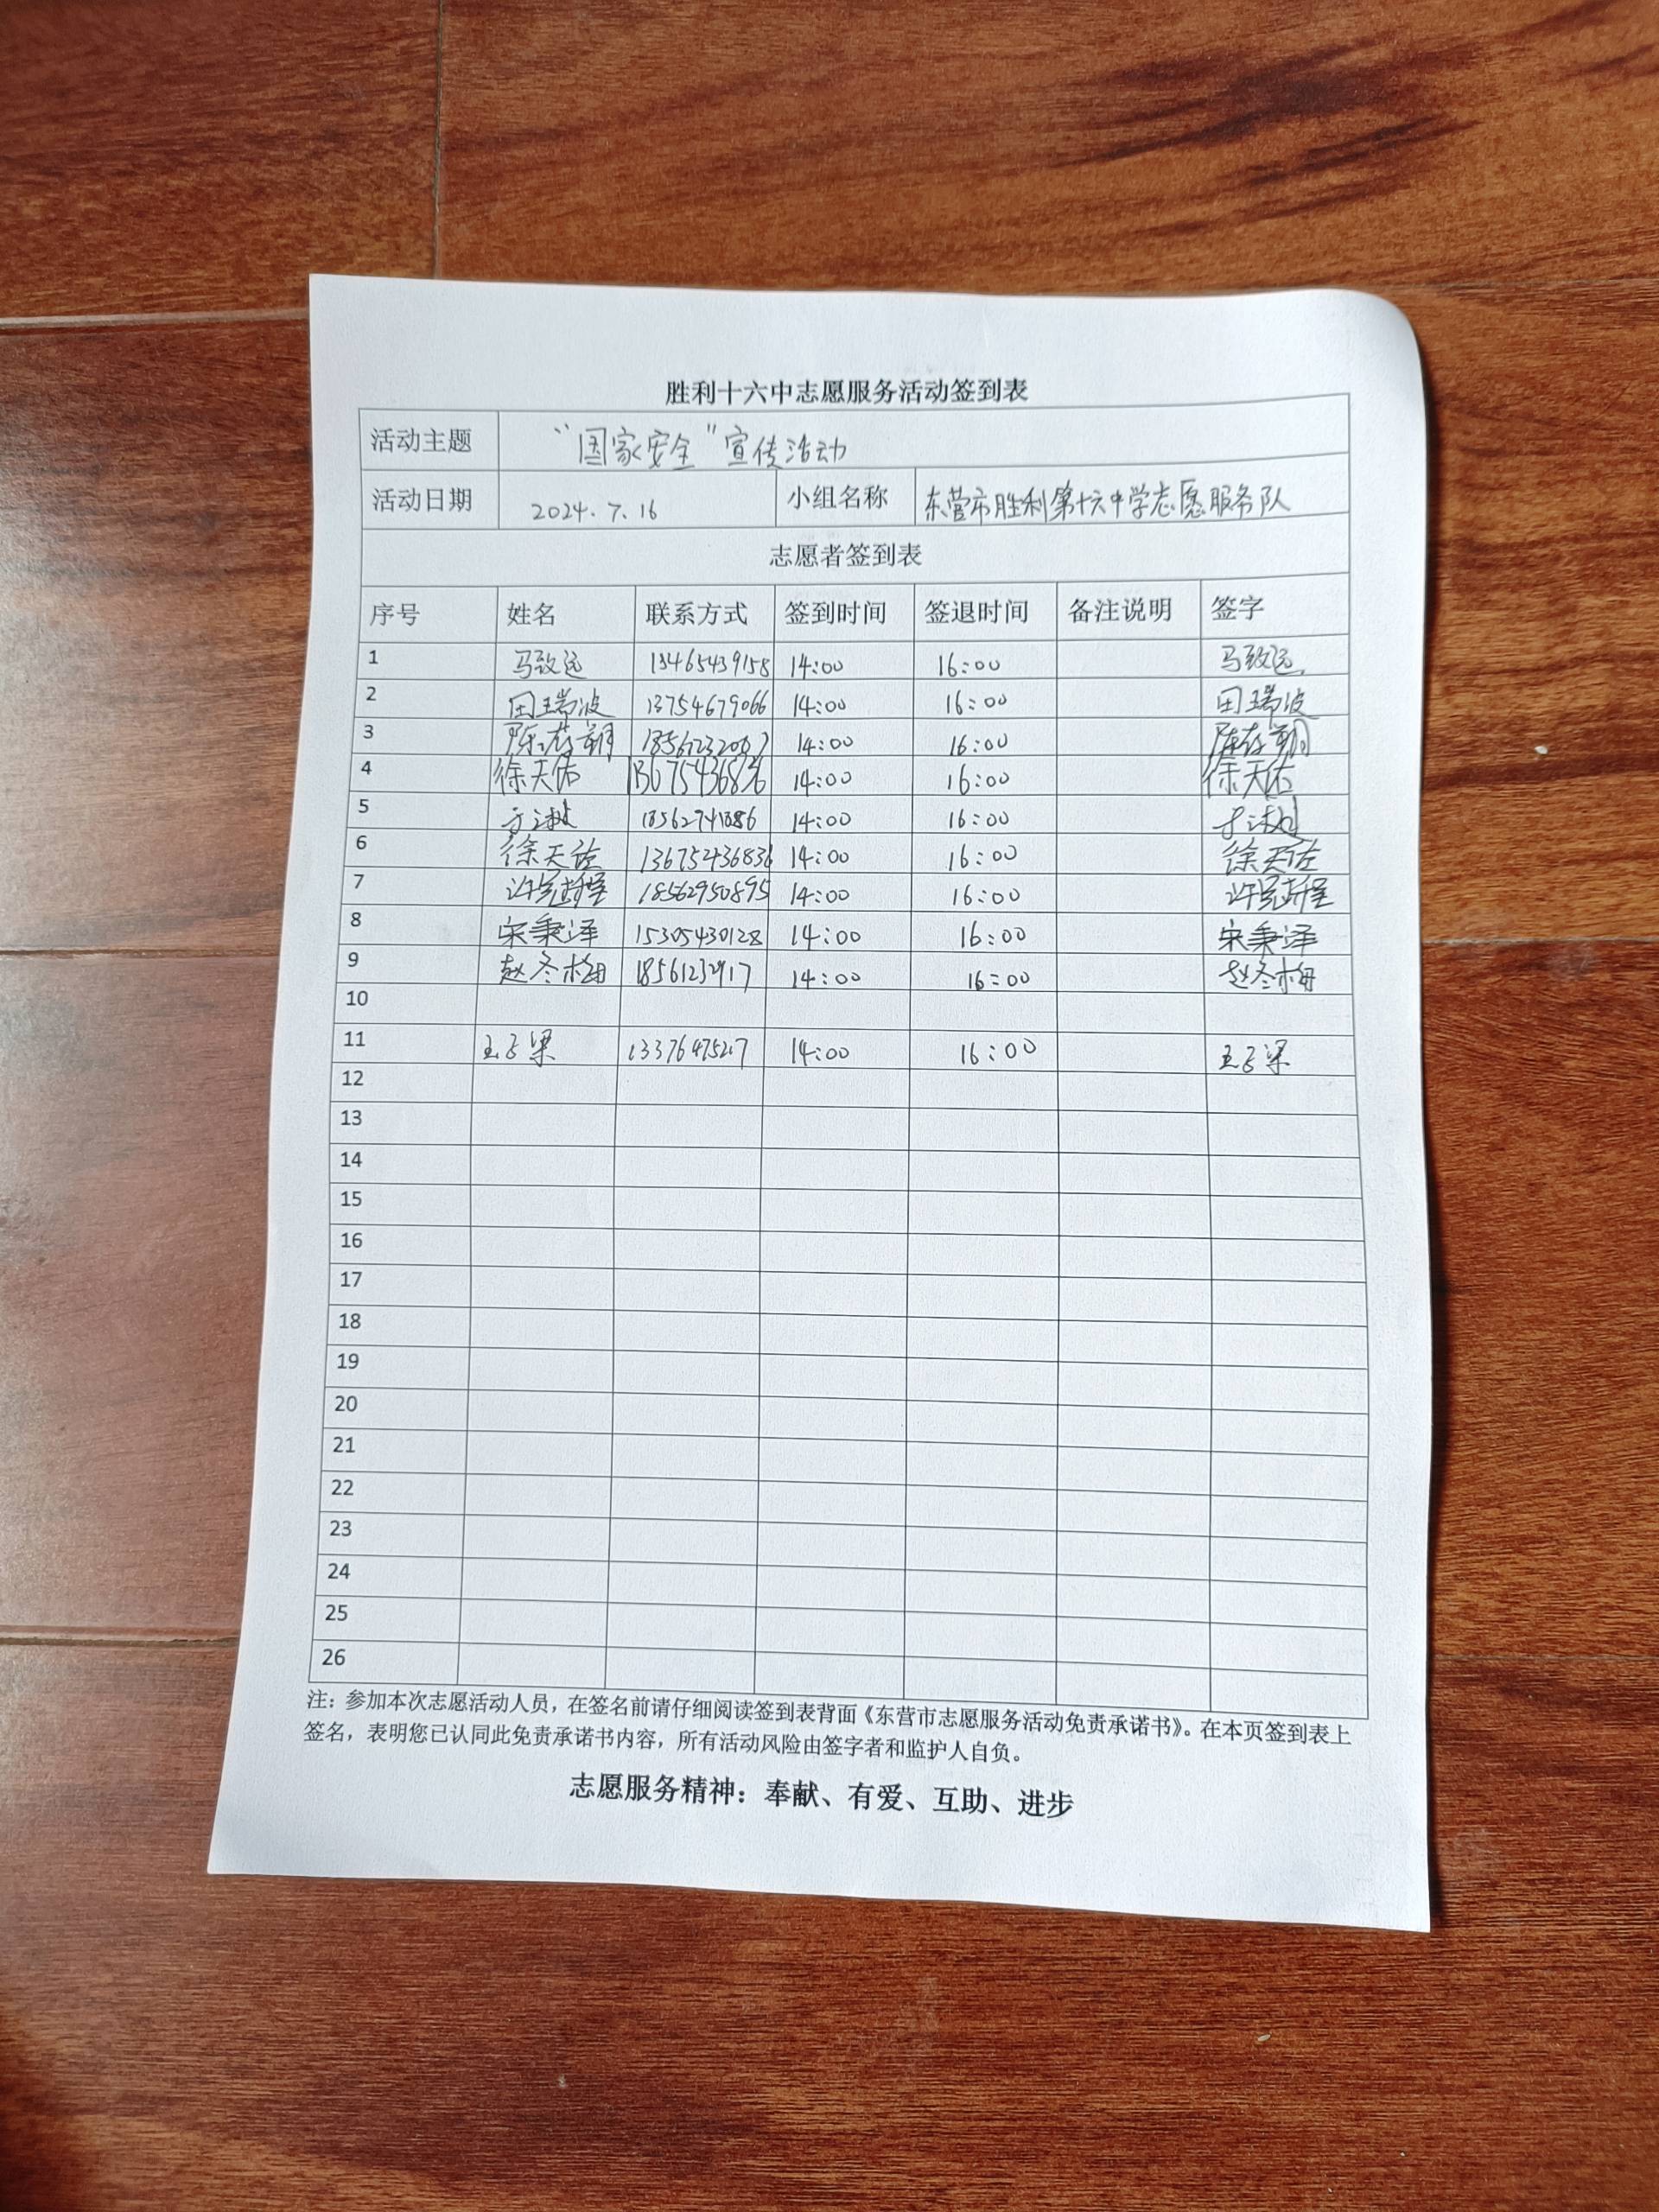 胜利十六中志愿服务活动签到表
活动主题 “国家安全”宣传活动
活动日期 2024.7.16 小组名称 东营市胜利第十六中学志愿服务队
志愿者签到表
序号 姓名 联系方式 签到时间 签退时间 备注说明 签字
1 马致远 13465439158 14:00 16:00 马致远
2 田瑞波 13754679066 14:00 16:00 田瑞波
3 14:00 16:00
4 徐天佑 13675436836 14:00 16:00 徐天佑
5 14:00 16:00
6 徐天佐 13675436836 14:00 16:00 徐天佐
7 18562950895 14:00 16:00
8 宋秉泽 15305430128 14:00 16:00 宋秉泽
9 赵冬梅 14:00 16:00 赵冬梅
10
11 王子梁 14:00 16:00 王子梁
12
13
14
15
16
17
18
19
20
21
22
23
24
25
26
注：参加本次志愿活动人员，在签名前请仔细阅读签到表背面《东营市志愿服务活动免责承诺书》。在本页签到表上
签名，表明您已认同此免责承诺书内容，所有活动风险由签字者和监护人自负。
志愿服务精神：奉献、有爱、互助、进步